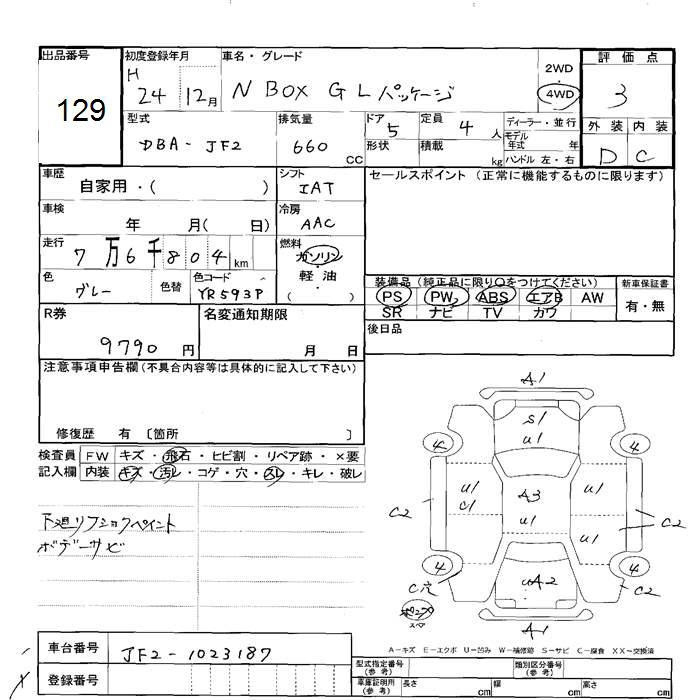 出品番号
129
初度登録年月
H
24 12月
車名・グレード
N BOX G Lパッケージ
2WD
・
4WD
評価点
3
外装 内装
D C
型式
DBA-JF2
排気量
660
CC
ドア
5
形状
定員 4 人
積載 kg
ディーラー・並行
モデル
年式 年
ハンドル 左・右
車歴
自家用・( )
シフト
IAT
セールスポイント (正常に機能するものに限ります)
車検
年 月( 日)
冷房
AAC
走行
7万6千804km
燃料
ガソリン
・
軽油
( )
色
グレー
色替
色コード
YR593P
装備品 (純正品に限り○をつけてください)
PS PW ABS エアB AW
SR ナビ TV カワ
新車保証書
有・無
R券
9790 円
名変通知期限
月 日
後日品
注意事項申告欄(不具合内容等は具体的に記入して下さい)
修復歴 有 〔箇所 〕
検査員
記入欄
FW キズ・飛石・ヒビ割・リペア跡・×要
内装 キズ・汚レ・コゲ・穴・スレ・キレ・破レ
下廻リフショクペイント
ボデーサビ
A1
S1
U1
4 4
U1
C1
A3
U1
U1
U1
C2
C2
4 4
C穴
UA2
C2
A1
A−キズ E−エクボ U−凹み W−補修跡 S−サビ C−腐食 XX−交換済
車台番号
JF2-1023187
登録番号
型式指定番号
(参考)
類別区分番号
(参考)
車庫証明用
(参考)
長さ cm
幅 cm
高さ cm